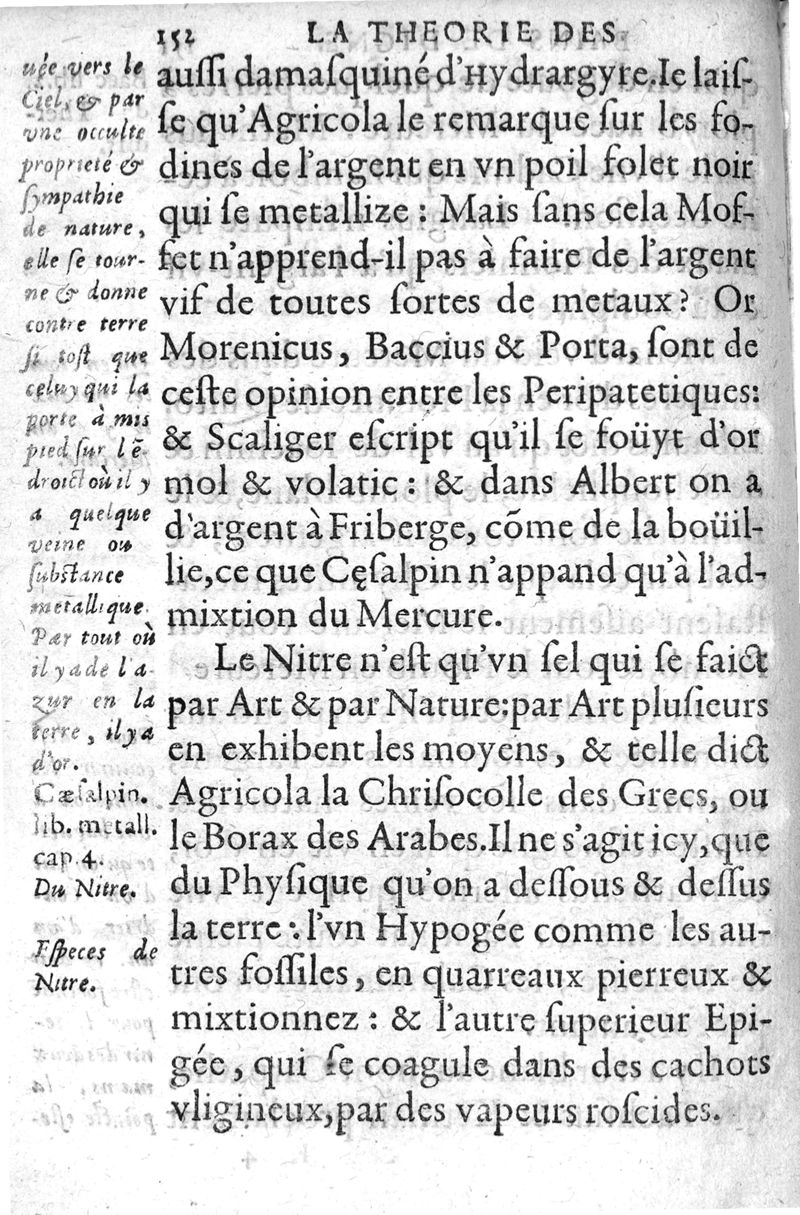 152 LA THEORIE DES
auſſi damaſquiné d'Hydrargyre. Ie laiſ-
ſe qu'Agricola le remarque ſur les fo-
dines de l'argent en vn poil folet noir
qui ſe metallize : Mais ſans cela Mof-
fet n'apprend-il pas à faire de l'argent
vif de toutes ſortes de metaux? Or
Morenicus, Baccius & Porta, ſont de
ceſte opinion entre les Peripatetiques:
& Scaliger eſcript qu'il ſe foüyt d'or
mol & volatic : & dans Albert on a
d'argent à Friberge, cõme de la boüil-
lie, ce que Cęſalpin n'appand qu'à l'ad-
mixtion du Mercure.
Le Nitre n'eſt qu'vn ſel qui ſe faict
par Art & par Nature: par Art pluſieurs
en exhibent les moyens, & telle dict
Agricola la Chriſocolle des Grecs, ou
le Borax des Arabes. Il ne s'agit icy, que
du Phyſique qu'on a deſſous & deſſus
la terre : l'vn Hypogée comme les au-
tres foſſiles, en quarreaux pierreux &
mixtionnez : & l'autre ſuperieur Epi-
gée, qui ſe coagule dans des cachots
vligineux, par des vapeurs roſcides.
uée vers le
Ciel, & par
vne occulte
proprieté &
ſympathie
de nature,
elle ſe tour-
ne & donne
contre terre
ſi toſt que
celuy qui la
porte à mis
pied ſur l'ē-
droict où il y
a quelque
veine ou
ſubſtance
metallique.
Par tout où
il y a de l'a-
zur en la
terre, il y a
d'or.
Cæſalpin.
lib. metall.
cap. 4.
Du Nitre.
Eſpeces de
Nitre.